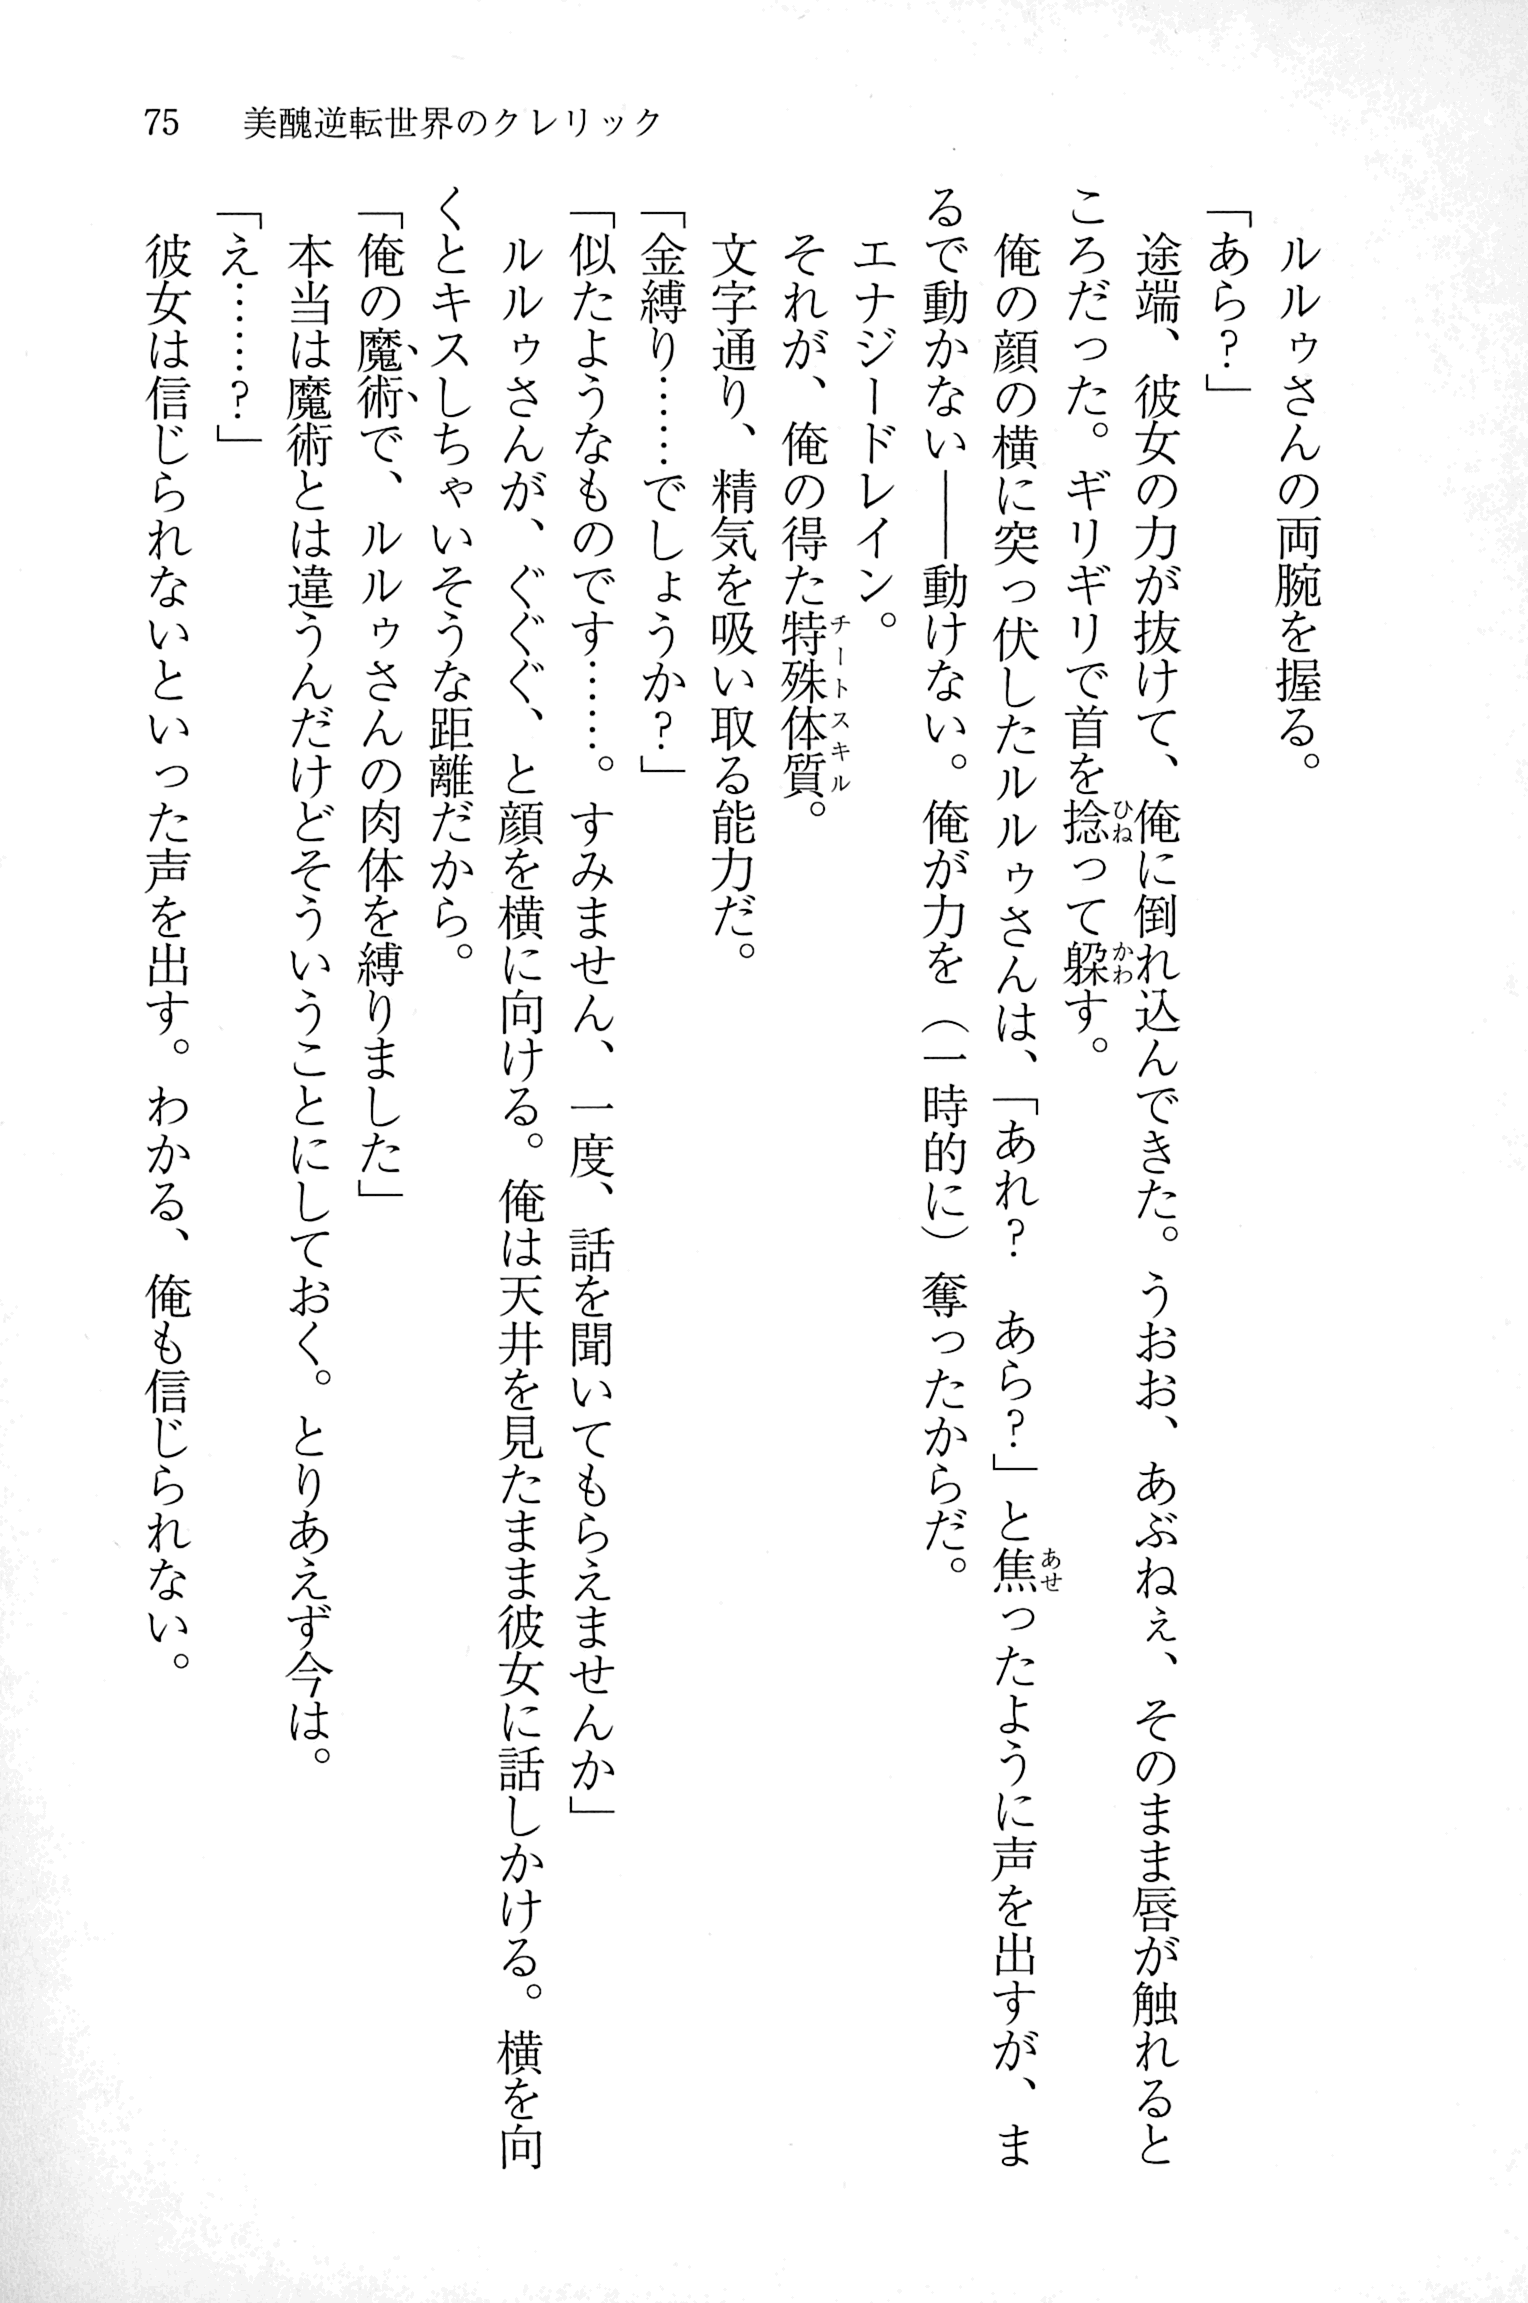 75 美醜逆転世界のクレリック
ルルゥさんの両腕を握る。
「あら?」
途端、彼女の力が抜けて、俺に倒れ込んできた。うおお、あぶねぇ、そのまま唇が触れると
ころだった。ギリギリで首を捻って躱す。
俺の顔の横に突っ伏したルルゥさんは、「あれ? あら?」と焦ったように声を出すが、ま
るで動かない――動けない。俺が力を(一時的に)奪ったからだ。
エナジードレイン。
それが、俺の得た特殊体質。
文字通り、精気を吸い取る能力だ。
「金縛り……でしょうか?」
「似たようなものです……。すみません、一度、話を聞いてもらえませんか」
ルルゥさんが、ぐぐぐ、と顔を横に向ける。俺は天井を見たまま彼女に話しかける。横を向
くとキスしちゃいそうな距離だから。
「俺の魔術で、ルルゥさんの肉体を縛りました」
本当は魔術とは違うんだけどそういうことにしておく。とりあえず今は。
「え……?」
彼女は信じられないといった声を出す。わかる、俺も信じられない。